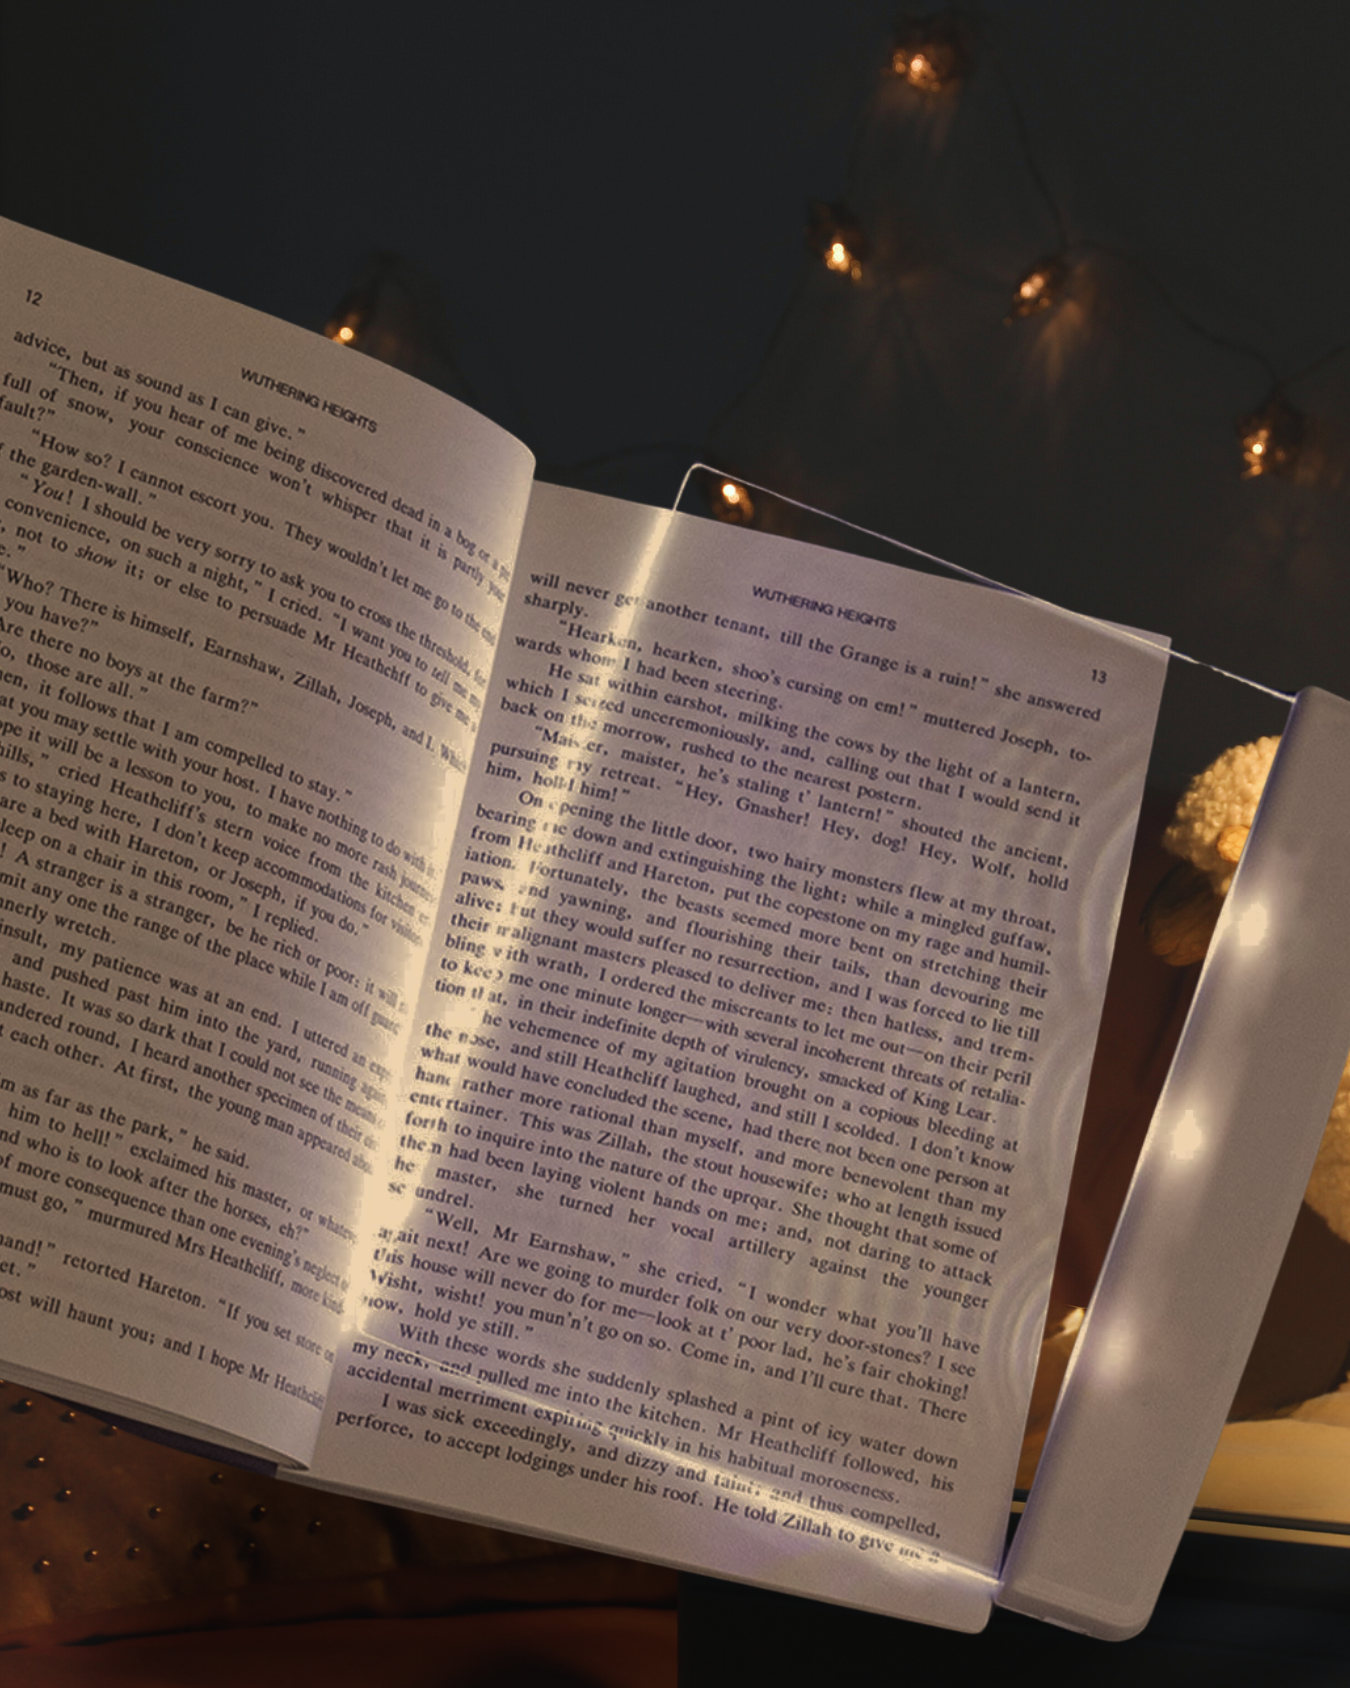 12
WUTHERING HEIGHTS
advice, but as sound as I can give."
"Then, if you hear of me being discovered dead in a bog or a
full of snow, your conscience won't whisper that it is partly your
fault?"
"How so? I cannot escort you. They wouldn't let me go to the end
the garden-wall."
"You! I should be very sorry to ask you to cross the threshold, for
convenience, on such a night," I cried. "I want you to tell me my
not to show it; or else to persuade Mr Heathcliff to give me
"Who? There is himself, Earnshaw, Zillah, Joseph, and I. Which
you have?"
Are there no boys at the farm?"
those are all."
it follows that I am compelled to stay."
you may settle with your host. I have nothing to do with it."
it will be a lesson to you, to make no more rash
cried Heathcliff's stern voice from the kitchen
to staying here, I don't keep accommodations for
a bed with Hareton, or Joseph, if you do."
on a chair in this room," I replied.
A stranger is a stranger, be he rich or poor: it will
any one the range of the place while I am off guard
wretch.
insult, my patience was at an end. I uttered an
and pushed past him into the yard, running
haste. It was so dark that I could not see the means
round, I heard another specimen of their
each other. At first, the young man appeared
as far as the park," he said.
him to hell!" exclaimed his master, or
who is to look after the horses, eh?"
of more consequence than one evening's neglect
must go," murmured Mrs Heathcliff, more
retorted Hareton. "If you set store
will haunt you; and I hope Mr Heathcliff
WUTHERING HEIGHTS
13
will never get another tenant, till the Grange is a ruin!" she answered
sharply.
"Hearken, hearken, shoo's cursing on em!" muttered Joseph, to-
wards whom I had been steering.
He sat within earshot, milking the cows by the light of a lantern,
which I seized unceremoniously, and, calling out that I would send it
back on the morrow, rushed to the nearest postern.
"Maister, maister, he's staling t' lantern!" shouted the ancient,
pursuing my retreat. "Hey, Gnasher! Hey, dog! Hey, Wolf, holld
him, holld him!"
On opening the little door, two hairy monsters flew at my throat,
bearing me down and extinguishing the light; while a mingled guffaw,
from Heathcliff and Hareton, put the copestone on my rage and humil-
iation. Fortunately, the beasts seemed more bent on stretching their
paws, and yawning, and flourishing their tails, than devouring me
alive; but they would suffer no resurrection, and I was forced to lie till
their malignant masters pleased to deliver me; then hatless, and trem-
bling with wrath, I ordered the miscreants to let me out—on their peril
to keep me one minute longer—with several incoherent threats of retalia-
tion that, in their indefinite depth of virulency, smacked of King Lear.
The vehemence of my agitation brought on a copious bleeding at
the nose, and still Heathcliff laughed, and still I scolded. I don't know
what would have concluded the scene, had there not been one person at
hand rather more rational than myself, and more benevolent than my
entertainer. This was Zillah, the stout housewife; who at length issued
forth to inquire into the nature of the uproar. She thought that some of
them had been laying violent hands on me; and, not daring to attack
her master, she turned her vocal artillery against the younger
scoundrel.
"Well, Mr Earnshaw," she cried, "I wonder what you'll have
agait next! Are we going to murder folk on our very door-stones? I see
this house will never do for me—look at t' poor lad, he's fair choking!
Wisht, wisht! you mun'n't go on so. Come in, and I'll cure that. There
now, hold ye still."
With these words she suddenly splashed a pint of icy water down
my neck, and pulled me into the kitchen. Mr Heathcliff followed, his
accidental merriment expiring quickly in his habitual moroseness.
I was sick exceedingly, and dizzy and faint; and thus compelled,
perforce, to accept lodgings under his roof. He told Zillah to give me a